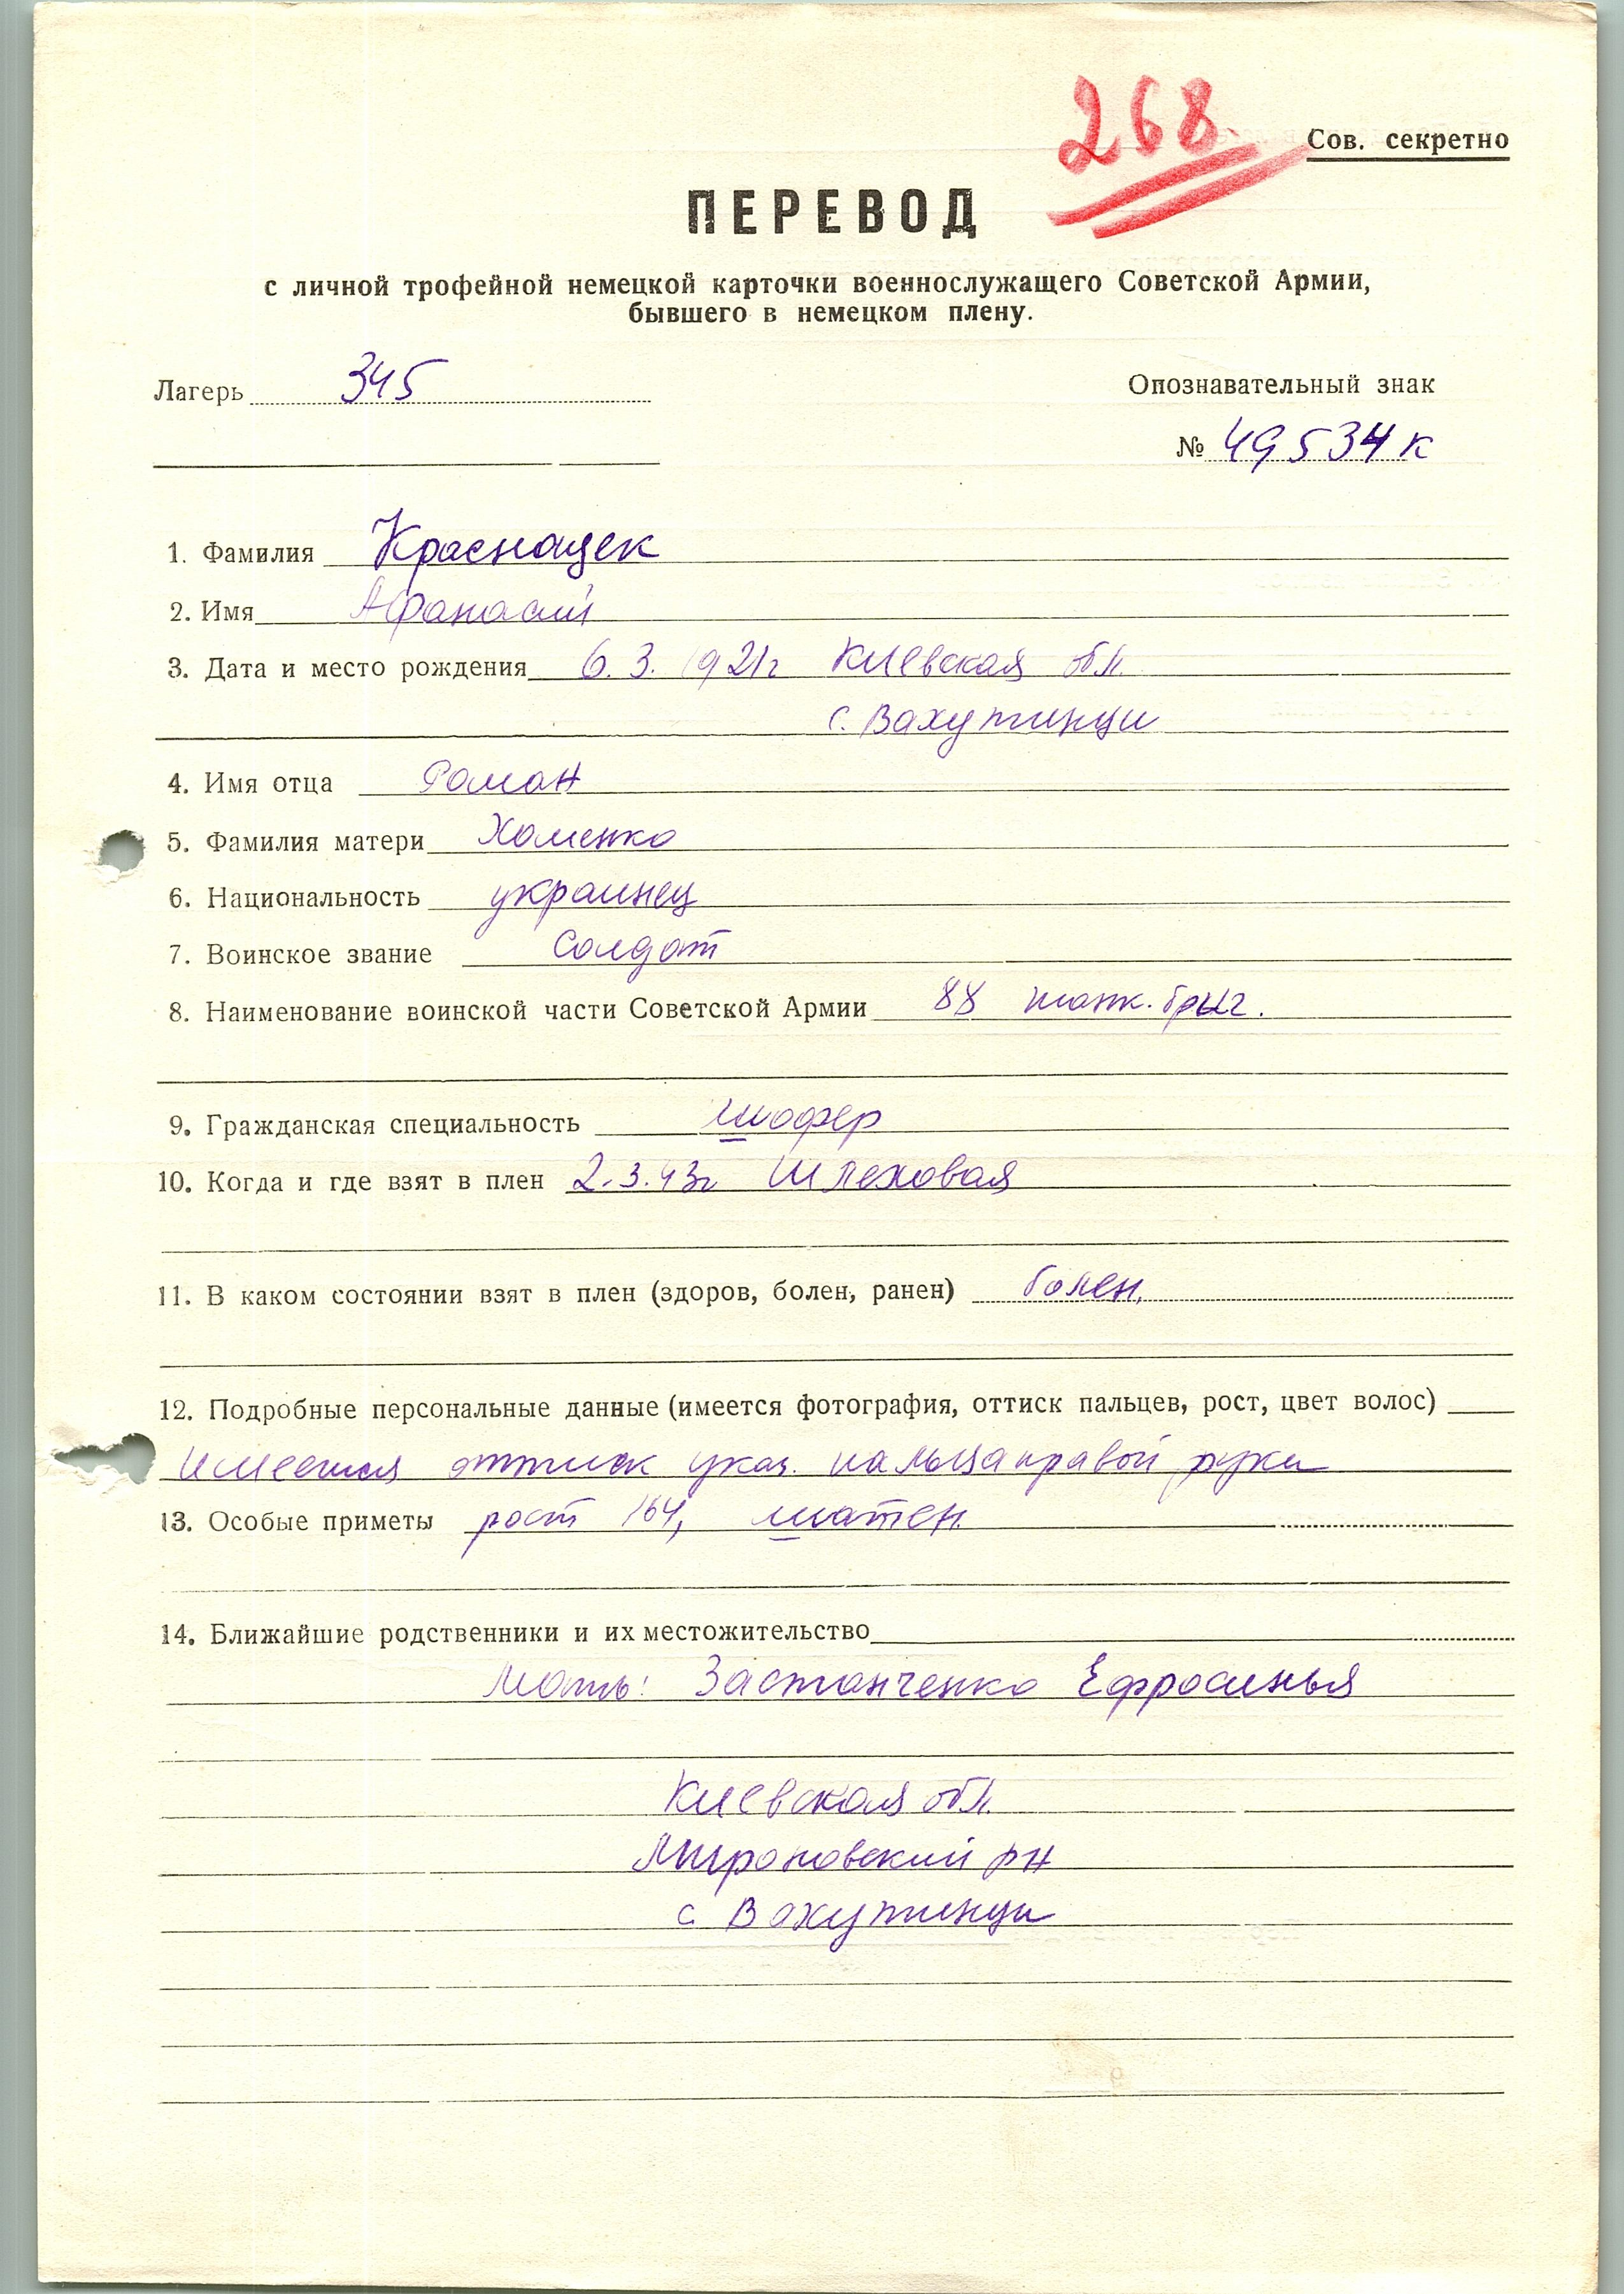 268
Сов. секретно
ПЕРЕВОД
с личной трофейной немецкой карточки военнослужащего Советской Армии,
бывшего в немецком плену.
Лагерь 345
Опознавательный знак
№ 49534 к
1. Фамилия Краснощек
2. Имя Афанасий
3. Дата и место рождения 6. 3. 1921г Киевская обл.
с. Вахутинци
4. Имя отца Роман
5. Фамилия матери Хоменко
6. Национальность украинец
7. Воинское звание Солдат
8. Наименование воинской части Советской Армии 88 танк. бриг.
9. Гражданская специальность шофер
10. Когда и где взят в плен 2.3.43г Шлеховая
11. В каком состоянии взят в плен (здоров, болен, ранен) болен.
12. Подробные персональные данные (имеется фотография, оттиск пальцев, рост, цвет волос)
Имеется оттиск указ. пальца правой руки
13. Особые приметы рост 164, шатен.
14. Ближайшие родственники и их местожительство
Мать: Застанченко Ефросинья
Киевская обл.
Мироновский рн
с Вахутинци